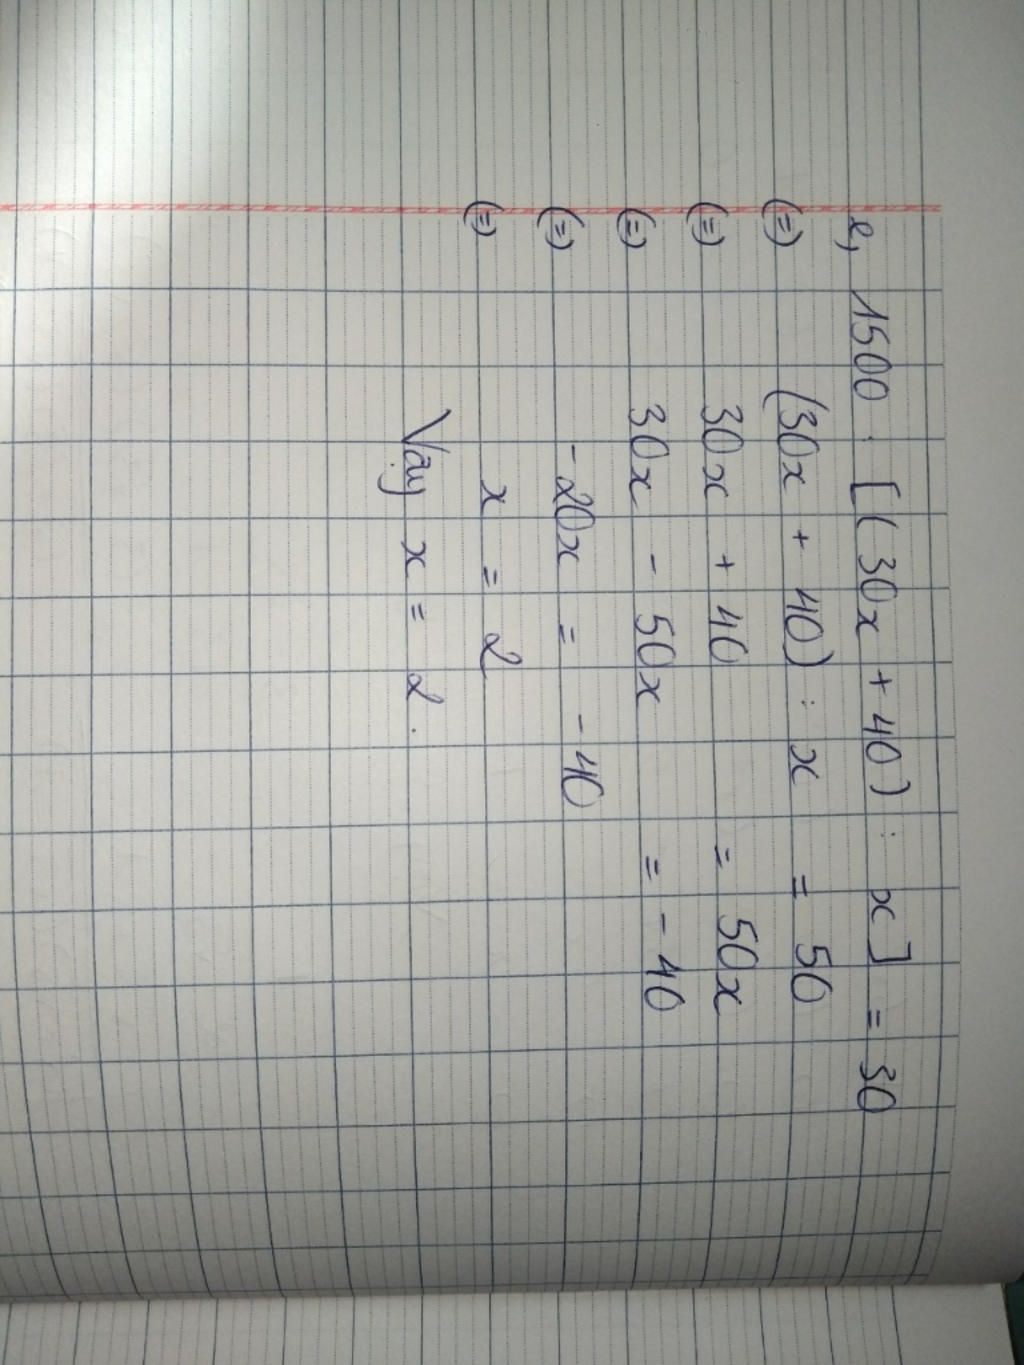 e, 1500 : [(30x + 40) : x] = 30
(=) (30x + 40) : x = 50
(=) 30x + 40 = 50x
(=) 30x - 50x = - 40
(=) - 20x = - 40
(=) x = 2
Vậy x = 2.